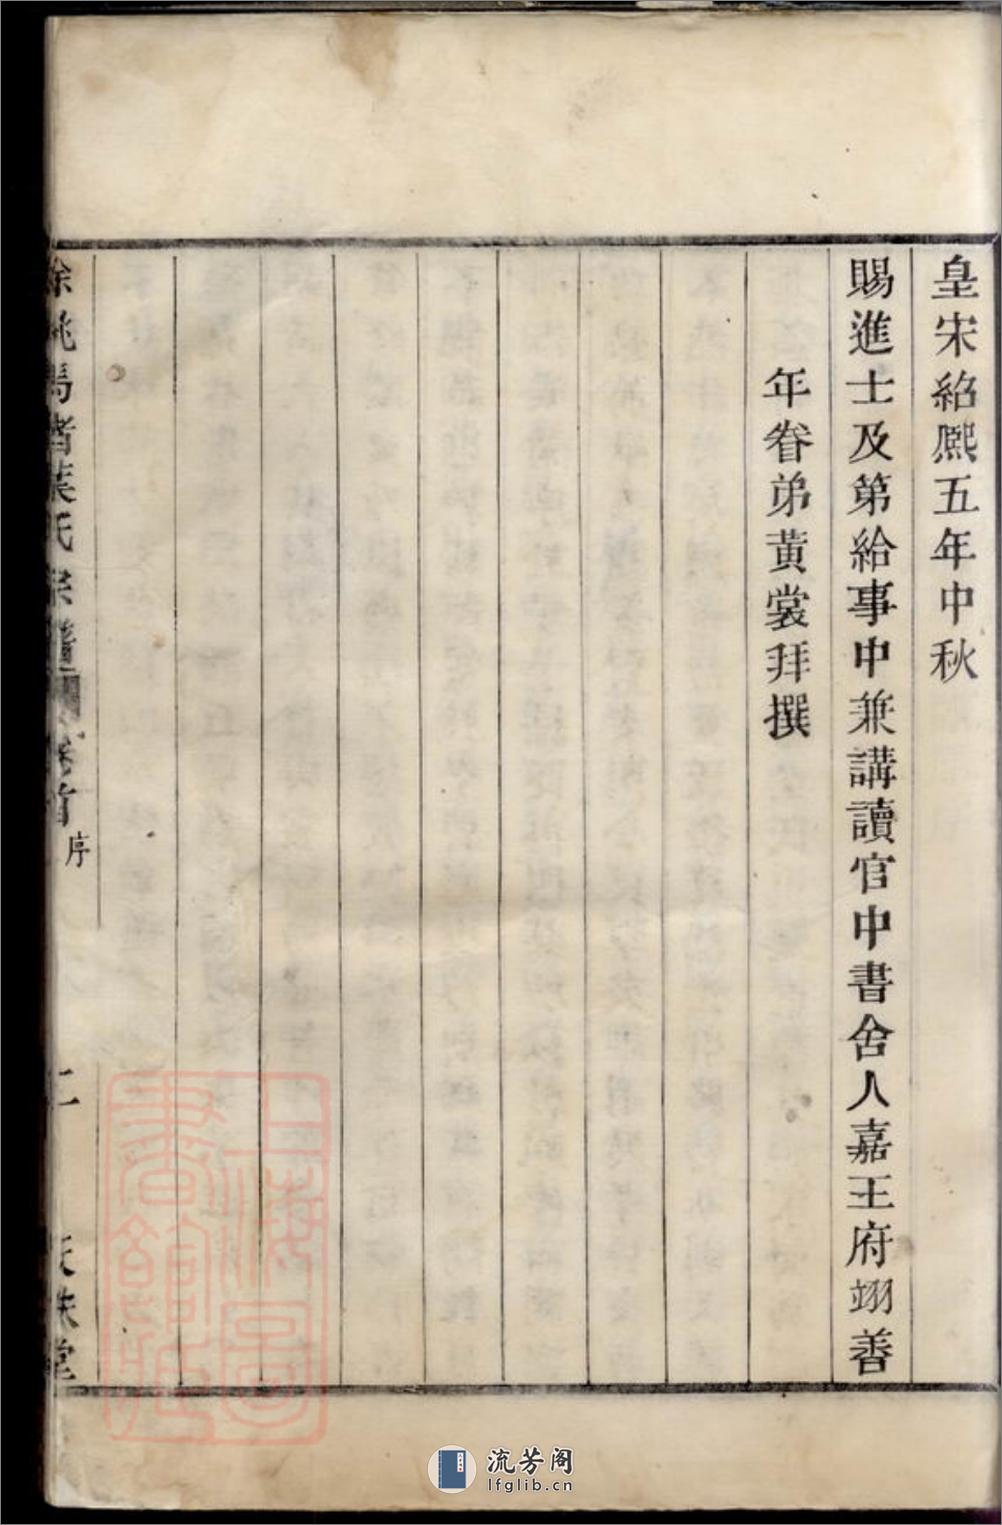 皇宋紹熙五年中秋
賜進士及第給事中兼講讀官中書舍人嘉王府翊善
年眷弟黃裳拜撰
餘姚馬渚葉氏宗譜
卷首
序
二
上海圖書館藏
流芳阁
lfglib.cn